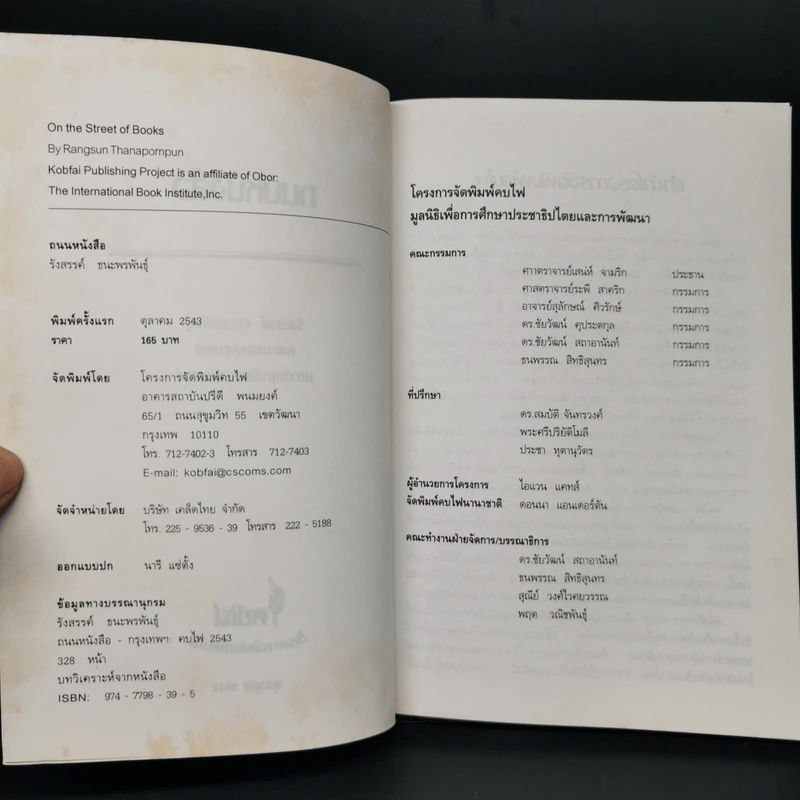 On the Street of Books
By Rangsun Thanapornpun
Kobfai Publishing Project is an affiliate of Obor:
The International Book Institute,Inc.
ถนนหนังสือ
รังสรรค์ ธนะพรพันธุ์
พิมพ์ครั้งแรก ตุลาคม 2543
ราคา 165 บาท
จัดพิมพ์โดย โครงการจัดพิมพ์คบไฟ
อาคารสถาบันปรีดี พนมยงค์
65/1 ถนนสุขุมวิท 55 เขตวัฒนา
กรุงเทพ 10110
โทร. 712-7402-3 โทรสาร 712-7403
E-mail: kobfai@cscoms.com
จัดจำหน่ายโดย บริษัท เคล็ดไทย จำกัด
โทร. 225 - 9536 - 39 โทรสาร 222 - 5188
ออกแบบปก นารี แซ่ตั้ง
ข้อมูลทางบรรณานุกรม
รังสรรค์ ธนะพรพันธุ์
ถนนหนังสือ - กรุงเทพฯ: คบไฟ 2543
328 หน้า
บทวิเคราะห์จากหนังสือ
ISBN: 974 - 7798 - 39 - 5
โครงการจัดพิมพ์คบไฟ
มูลนิธิเพื่อการศึกษาประชาธิปไตยและการพัฒนา
คณะกรรมการ
ศาาตราจารย์เสน่ห์ จามริก ประธาน
ศาสตราจารย์ระพี สาคริก กรรมการ
อาจารย์สุลักษณ์ ศิวรักษ์ กรรมการ
ดร.ชัยวัฒน์ คุประตกุล กรรมการ
ดร.ชัยวัฒน์ สถาอานันท์ กรรมการ
ธนพรรณ สิทธิสุนทร กรรมการ
ที่ปรึกษา
ดร.สมบัติ จันทรวงศ์
พระศรีปริยัติโมลี
ประชา หุตานุวัตร
ผู้อำนวยการโครงการ ไอแวน แคทส์
จัดพิมพ์คบไฟนานาชาติ ดอนนา แอนเดอร์ตัน
คณะทำงานฝ่ายจัดการ/บรรณาธิการ
ดร.ชัยวัฒน์ สถาอานันท์
ธนพรรณ สิทธิสุนทร
สุณีย์ วงศ์ไวศยวรรณ
พฤฒ วณิชพันธุ์